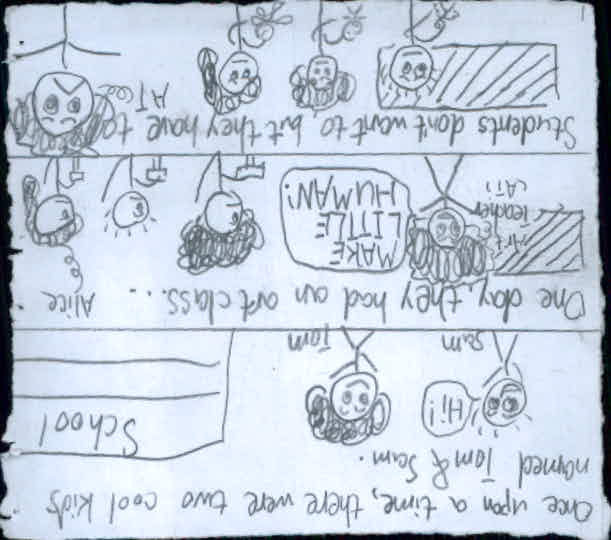 Once upon a time, there were two cool kids
named Tom & Sam.
Hi!
School
Sam
Tom
One day, they had an art class...
Alice
MAKE
LITTLE
HUMAN!
Art
Teacher
(AT)
Students don't want to but they have to
AT